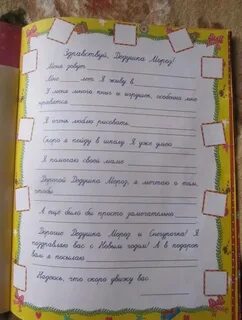 Здравствуй, Дедушка Мороз!
Меня зовут
Мне ___ лет. Я живу в
У меня много книг и игрушек, особенно мне
нравятся
Я очень люблю рисовать.
Скоро я пойду в школу. Я уже умею
Я помогаю своей маме
Дорогой Дедушка Мороз, я мечтаю о том,
чтобы
А ещё было бы просто замечательно
Дорогие Дедушка Мороз и Снегурочка! Я
поздравляю вас с Новым годом! А в подарок
вам я посылаю
Надеюсь, что скоро увижу вас.